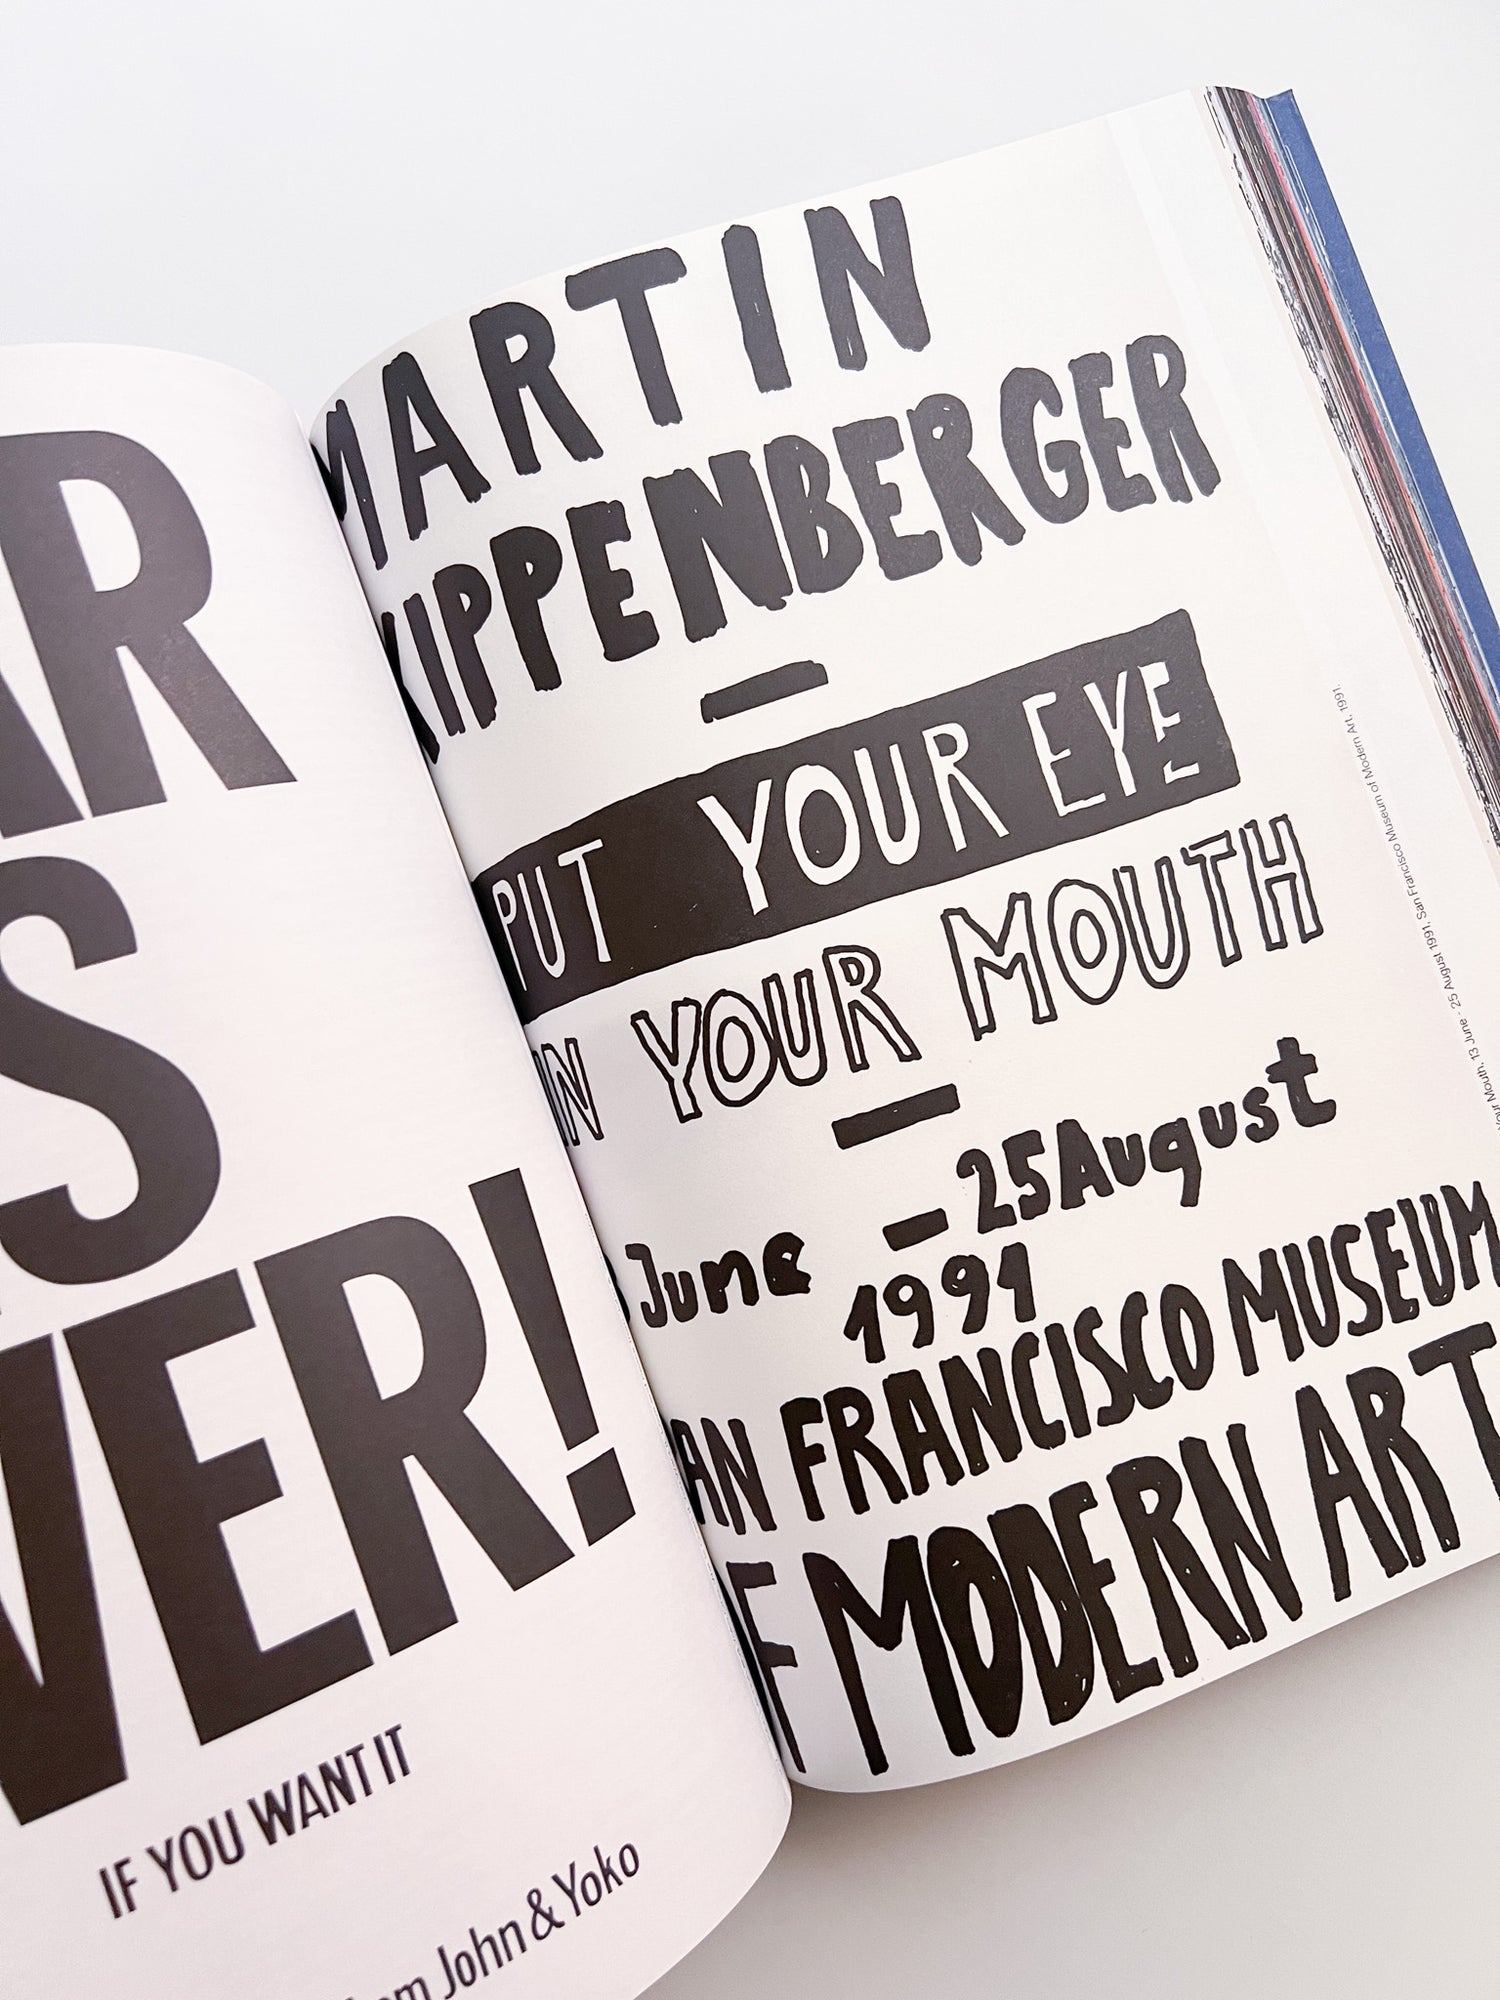 AR
IS
VER!
IF YOU WANT IT
om John & Yoko
MARTIN
KIPPENBERGER
—
PUT YOUR EYE
IN YOUR MOUTH
—
June — 25 August
1991
AN FRANCISCO MUSEUM
F MODERN ART
Your Mouth, 13 June - 25 August 1991, San Francisco Museum of Modern Art, 1991.